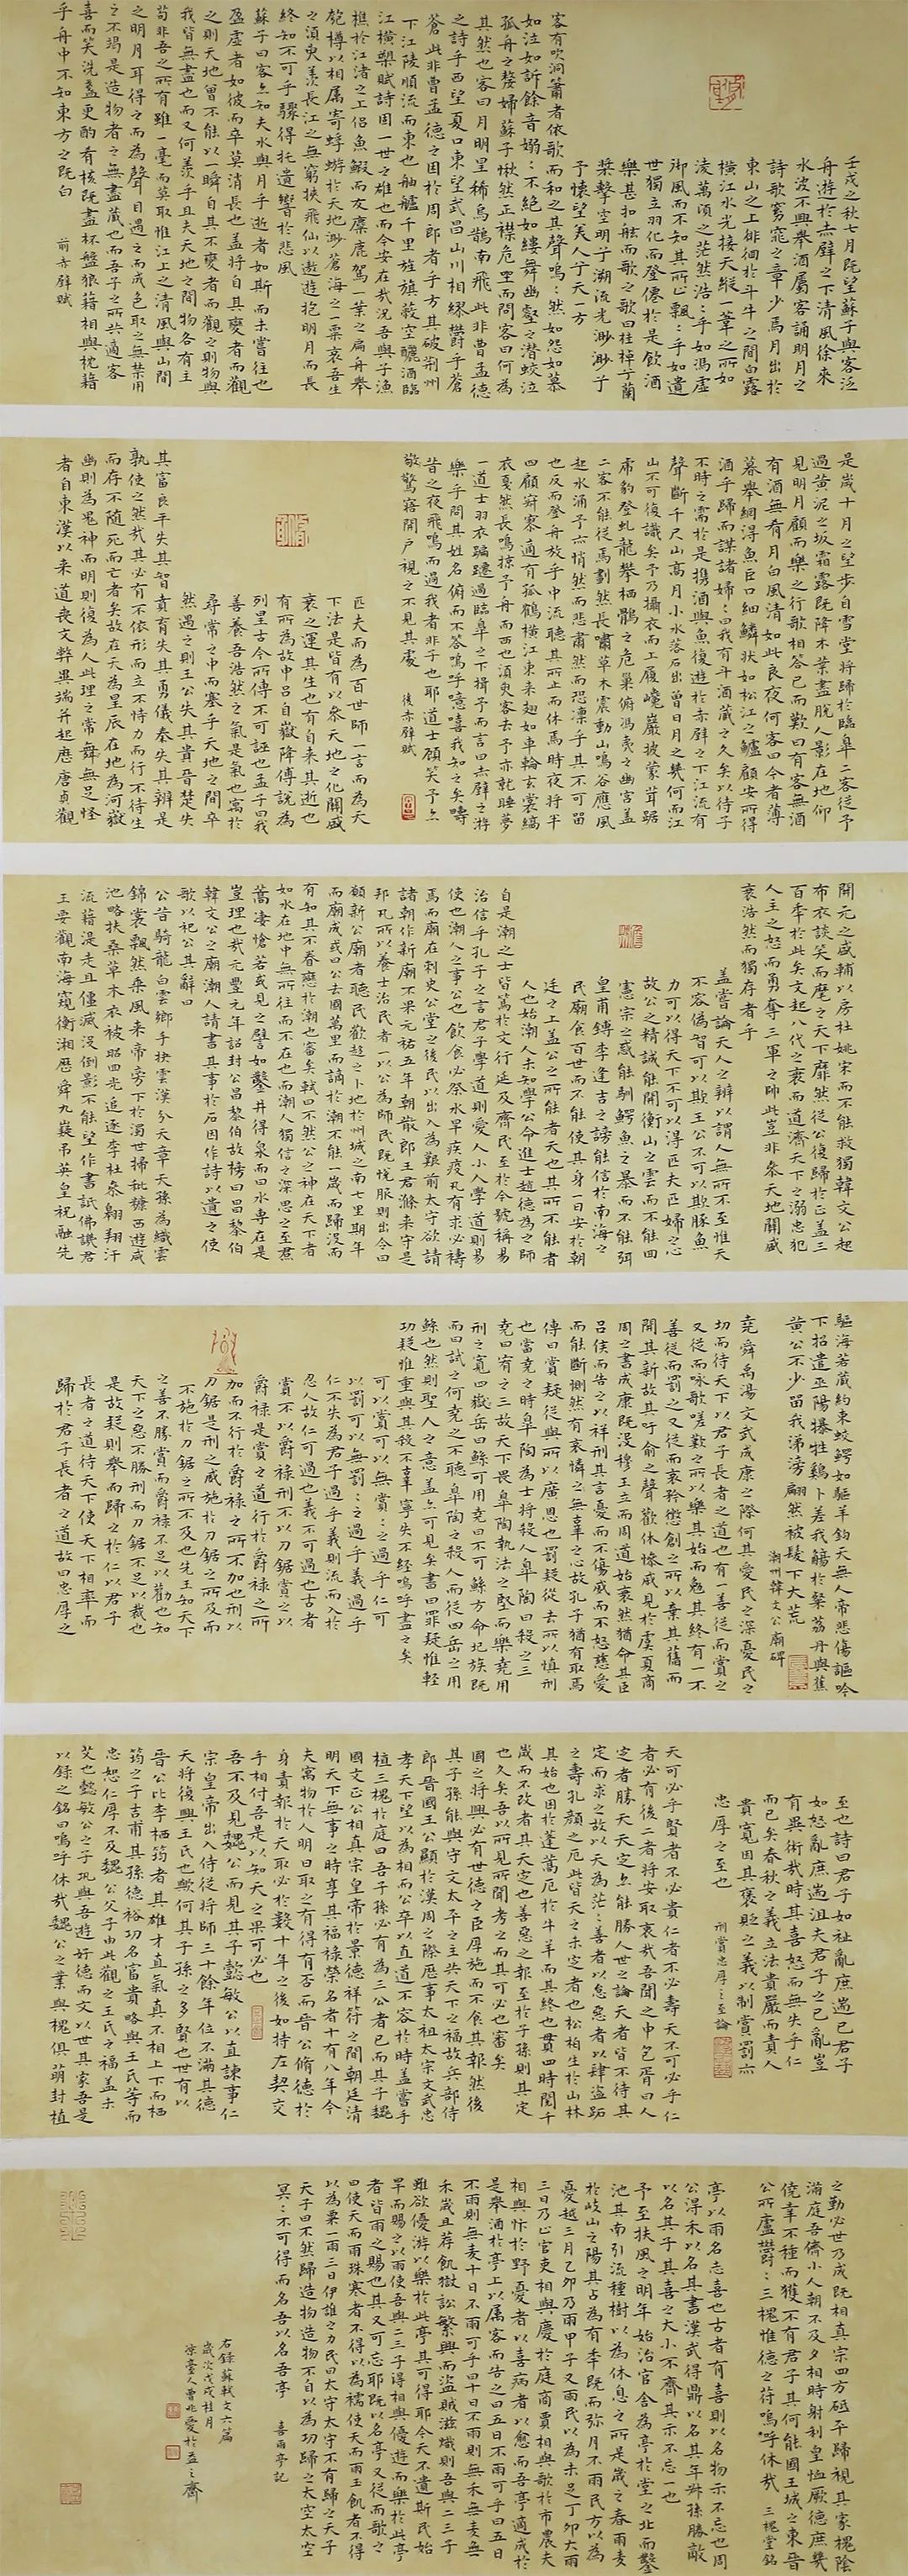 壬戌之秋七月既望蘇子與客泛
舟遊於赤壁之下清風徐來
水波不興舉酒屬客誦明月之
詩歌窈窕之章少焉月出於
東山之上徘徊於斗牛之間白露
橫江水光接天縱一葦之所如
淩萬頃之茫然浩:乎如馮虛
御風而不知其所止飄:乎如遺
世獨立羽化而登僊於是飲酒
樂甚扣舷而歌之歌曰桂棹兮蘭
槳擊空明兮溯流光渺渺兮
予懷望美人兮天一方
客有吹洞簫者依歌而和之其聲嗚:然如怨如慕
如泣如訴餘音嫋:不絕如縷舞幽壑之潛蛟泣
孤舟之嫠婦蘇子愀然正襟危坐而問客曰何為
其然也客曰月明星稀烏鵲南飛此非曹孟德
之詩乎西望夏口東望武昌山川相繆鬱乎蒼
蒼此非曹孟德之困於周郎者乎方其破荆州
下江陵順流而東也舳艫千里旌旗蔽空釃酒臨
江橫槊賦詩固一世之雄也而今安在哉況吾與子漁
樵於江渚之上侶魚鰕而友麋鹿駕一葉之扁舟舉
匏樽以相屬寄蜉蝣於天地渺蒼海之一粟哀吾生
之須臾羨長江之無窮挾飛仙以遨遊抱明月而長
終知不可乎驟得托遺響於悲風
蘇子曰客亦知夫水與月乎逝者如斯而未嘗往也
盈虛者如彼而卒莫消長也盖將自其變者而觀
之則天地曾不能以一瞬自其不變者而觀之則物與
我皆無盡也而又何羨乎且夫天地之間物各有主
苟非吾之所有雖一毫而莫取惟江上之清風與山間
之明月耳得之而為聲目遇之而成色取之無禁用
之不竭是造物者之無盡藏也而吾子之所共適客
喜而笑洗盞更酌肴核既盡杯盤狼藉相與枕藉
乎舟中不知東方之既白
前赤壁賦
是歲十月之望步自雪堂將歸於臨皋二客從予
過黃泥之坂霜露既降木葉盡脫人影在地仰
見明月顧而樂之行歌相答已而歎曰有客無酒
有酒無肴月白風清如此良夜何客曰今者薄
暮舉網得魚巨口細鱗狀如松江之鱸顧安所得
酒乎歸而謀諸婦:曰我有斗酒藏之久矣以待子
不時之需於是攜酒與魚復遊於赤壁之下江流有
聲斷千尺山高月小水落石出曾日月之幾何而江
山不可復識矣予乃攝衣而上履巉巖披蒙茸踞
虎豹登虬龍攀栖鶻之危巢俯馮夷之幽宮盖
二客不能從焉劃然長嘯草木震動山鳴谷應風
起水涌予亦悄然而悲肅然而恐凜乎其不可留
也反而登舟放乎中流聽其所止而休焉時夜將半
四顧寂寥適有孤鶴橫江東来翅如車輪玄裳縞
衣戛然長鳴掠予舟而西也須臾客去予亦就睡夢
一道士羽衣蹁躚過臨皋之下揖予而言曰赤壁之遊
樂乎問其姓名俯而不答嗚呼噫嘻我知之矣疇
昔之夜飛鳴而過我者非子也耶道士顧笑予亦
敬驚寤開戶視之不見其處
後赤壁賦
匹夫而為百世師一言而為天
下法是皆有以參天地之化關盛
衰之運其生也有自来其逝也
有所為故申呂自嶽降傅說為
列星古今所傳不可誣也孟子曰我
善養吾浩然之氣是氣也寓於
尋常之中而塞乎天地之間卒
然遇之則王公失其貴晉楚失
其富良平失其智賁育失其勇儀秦失其辨是
孰使之然哉其必有不依形而立不恃力而行不待生
而存不隨死而亡者矣故在天為星辰在地為河嶽
幽則為鬼神而明則復為人此理之常舞足怪
者自東漢以来道喪文弊異端并起歷唐貞觀
開元之盛輔以房杜姚宋而不能救獨韓文公起
布衣談笑而麾之天下靡然從公復歸於正盖三
百年於此矣文起八代之衰而道濟天下之溺忠犯
人主之怒而勇奪三軍之帥此豈非參天地關盛
衰浩然而獨存者乎
盖嘗論天人之辨以謂人無所不至惟天
不容偽智可以欺王公不可以欺豚魚
力可以得天下不可以得匹夫匹婦之心
故公之精誠能開衡山之雲而不能回
憲宗之惑能馴鰐魚之暴而不能弭
皇甫鎛李逢吉之謗能信於南海之
民廟食百世而不能使其身一日安於朝
廷之上盖公之所能者天也其所不能者
人也始潮人未知學公命進士趙德為之師
自是潮之士皆篤於文行延及齊民至於今號稱易
治信乎孔子之言君子學道則愛人小人學道則易
使也潮人之事公也飲食必祭水旱疾疫凡有求必禱
焉而廟在刺史公堂之後民以出入為艱前太守欲請
諸朝作新廟不果元祐五年朝散郎王君滌来守是
邦凡所以養士治民者一以公為師民既悅服則出令曰
願新公廟者聽民歡趨之卜地於州城之南七里期年
而廟成或曰公去國萬里而謫於潮不能一歲而歸沒而
有知其不眷戀於潮也審矣軾曰不然公之神在天下者
如水在地中無所往而不在也而潮人獨信之深思之至焄
蒿凄愴若或見之譬如鑿井得泉而曰水専在是
豈理也哉元豐元年詔封公昌黎伯故榜曰昌黎伯
韓文公之廟潮人請書其事於石因作詩以遺之使
歌以祀公其辭曰
公昔騎龍白雲鄉手抉雲漢分天章天孫為織雲
錦裳飄然乘風来帝旁下於濁世掃秕糠西遊咸
池略扶桑草木衣被昭回光追逐李杜參翱翔汗
流籍湜走且僵滅没倒影不能望作書詆佛譏君
王要觀南海窺衡湘歷舜九嶷吊英皇祝融先
驅海若藏約束蛟鰐如驅羊鈞天無人帝悲傷謳吟
下招遣巫陽犦牲鷄卜羞我觴於粲荔丹與蕉
黄公不少留我涕滂翩然被髮下大荒
潮州韓文公廟碑
堯舜禹湯文武成康之際何其愛民之深憂民之
切而待天下以君子長者之道也有一善從而賞之
又從而咏歌嗟歎之所以樂其始而勉其終有一不
善從而罰之又從而哀矜懲創之所以棄其舊而
開其新故其吁俞之聲歡休慘戚見於虞夏商
周之書成康既没穆王立而周道始衰然猶命其臣
呂侯而告之以祥刑其言憂而不傷威而不怒慈愛
而能斷惻然有哀憐之無辜之心故孔子猶有取焉
傳曰賞疑從與所以廣恩也罰疑從去所以慎刑
也當堯之時皋陶為士將殺人皋陶曰殺之三
堯曰宥之三故天下畏皋陶執法之堅而樂堯用
刑之寬四嶽岳曰鯀可用堯曰不可鯀方命圮族既
而曰試之何堯之不聽皋陶之殺人而從四岳之用
鯀也然則聖人之意盖亦可見矣書曰罪疑惟輕
功疑惟重與其殺不辜寧失不经嗚呼盡之矣
可以賞可以無賞:之過乎仁可
以罰可以無罰:之過乎義過乎
仁不失為君子過乎義則流而入於
忍人故仁可過也義不可過也古者
賞不以爵禄刑不以刀鋸賞之以
爵禄是賞之道行於爵禄之所
加而不行於爵禄之所不加也刑以
刀鋸是刑之威施於刀鋸之所及而
不施於刀鋸之所不及也先王知天下
之善不勝賞而爵禄不足以勸也知
天下之惡不勝刑而刀鋸不足以裁也
是故疑則舉而歸之於仁以君子
長者之道待天下使天下相率而
歸於君子長者之道故曰忠厚之
至也詩曰君子如祉亂庶遄已君子
如怒亂庶遄沮夫君子之已亂豈
有異術哉時其喜怒而無失乎仁
而已矣春秋之義立法貴嚴而責人
貴寬因其褒貶之義以制賞罰亦
忠厚之至也
刑賞忠厚之至論
天可必乎賢者不必貴仁者不必壽天不可必乎仁
者必有後二者將安取衷哉吾聞之申包胥曰人
定者勝天天定亦能勝人世之論天者皆不待其
定而求之故以天為茫:善者以怠惡者以肆盜跖
之壽孔顏之厄此皆天之未定者也松柏生於山林
其始也困於蓬蒿厄於牛羊而其終也貫四時閱千
歲而不改者其天定也善惡之報至於子孫則其定
也久矣吾以所見所聞考之而其可必也審矣
國之將興必有世德之臣厚施而不食其報然後
其子孫能與守文太平之主共天下之福故兵部侍
郎晉國王公顯於漢周之際歷事太祖太宗文武忠
孝天下望以為相而公卒以直道不容於時盖嘗手
植三槐於庭曰吾子孫必有為三公者已而其子魏
國文正公相真宗皇帝於景德祥符之間朝廷清
明天下無事之時享其福禄榮名者十有八年今
夫寓物於人明日取之有得有否而晉公脩德於
身責報於天取必於數十年之後如持左契交
手相付吾是以知天之果可必也
吾不及見魏公而見其子懿敏公以直諫事仁
宗皇帝出入侍從將帥三十餘年位不滿其德
天將後興王氏也歟何其子孫之多賢也世有以
晉公比李栖筠者其雄才直氣真不相上下而栖
筠之子吉甫其孫德裕功名富貴略與王氏等而
忠恕仁厚不及魏公父子由此觀之王氏之福盖未
艾也懿敏公之子鞏與吾遊好德而文以世其家吾是
以録之銘曰嗚呼休哉魏公之業與槐俱萌封植
之勤必世乃成既相真宗四方砥平歸視其家槐陰
滿庭吾儕小人朝不及夕相時射利皇恤厥德庶幾
僥幸不種而獲不有君子其何能國王城之東晉
公所廬鬱:三槐惟德之符嗚呼休哉
三槐堂銘
亭以雨名志喜也古者有喜則以名物示不忘也周
公得禾以名其書漢武得鼎以名其年叔孫勝敵
以名其子其喜之大小不齊其示不忘一也
予至扶風之明年始治官舍為亭於堂之北而鑿
池其南引流種樹以為休息之所是歲之春雨麦
於岐山之陽其占為有年既而弥月不雨民方以為
憂越三月乙卯乃雨甲子又雨民以為未足丁卯大雨
三日乃止官吏相與慶於庭商賈相與歌於市農夫
相與忭於野憂者以喜病者以愈而吾亭適成於
是舉酒於亭上以属客而告之曰五日不雨可乎曰五日
不雨則無麦十日不雨可乎曰十日不雨則無禾無麦無
禾歲且荐飢獄訟繁興而盜賊滋熾則吾與二三子
雖欲優游以樂於此亭其可得耶今天不遺斯民始
旱而賜之以雨使吾與二三子得相與優遊而樂於此亭
者皆雨之賜也其又可忘耶既以名亭又從而歌之
曰使天而雨珠寒者不得以為襦使天而雨玉飢者不得
以為粟一雨三日伊誰之力民曰太守太守不有歸之天子
天子曰不然歸造物造物不自以為功歸之太空太空
冥:不可得而名吾以名吾亭
喜雨亭記
右録蘇軾文六篇
歲次戊戌桂月